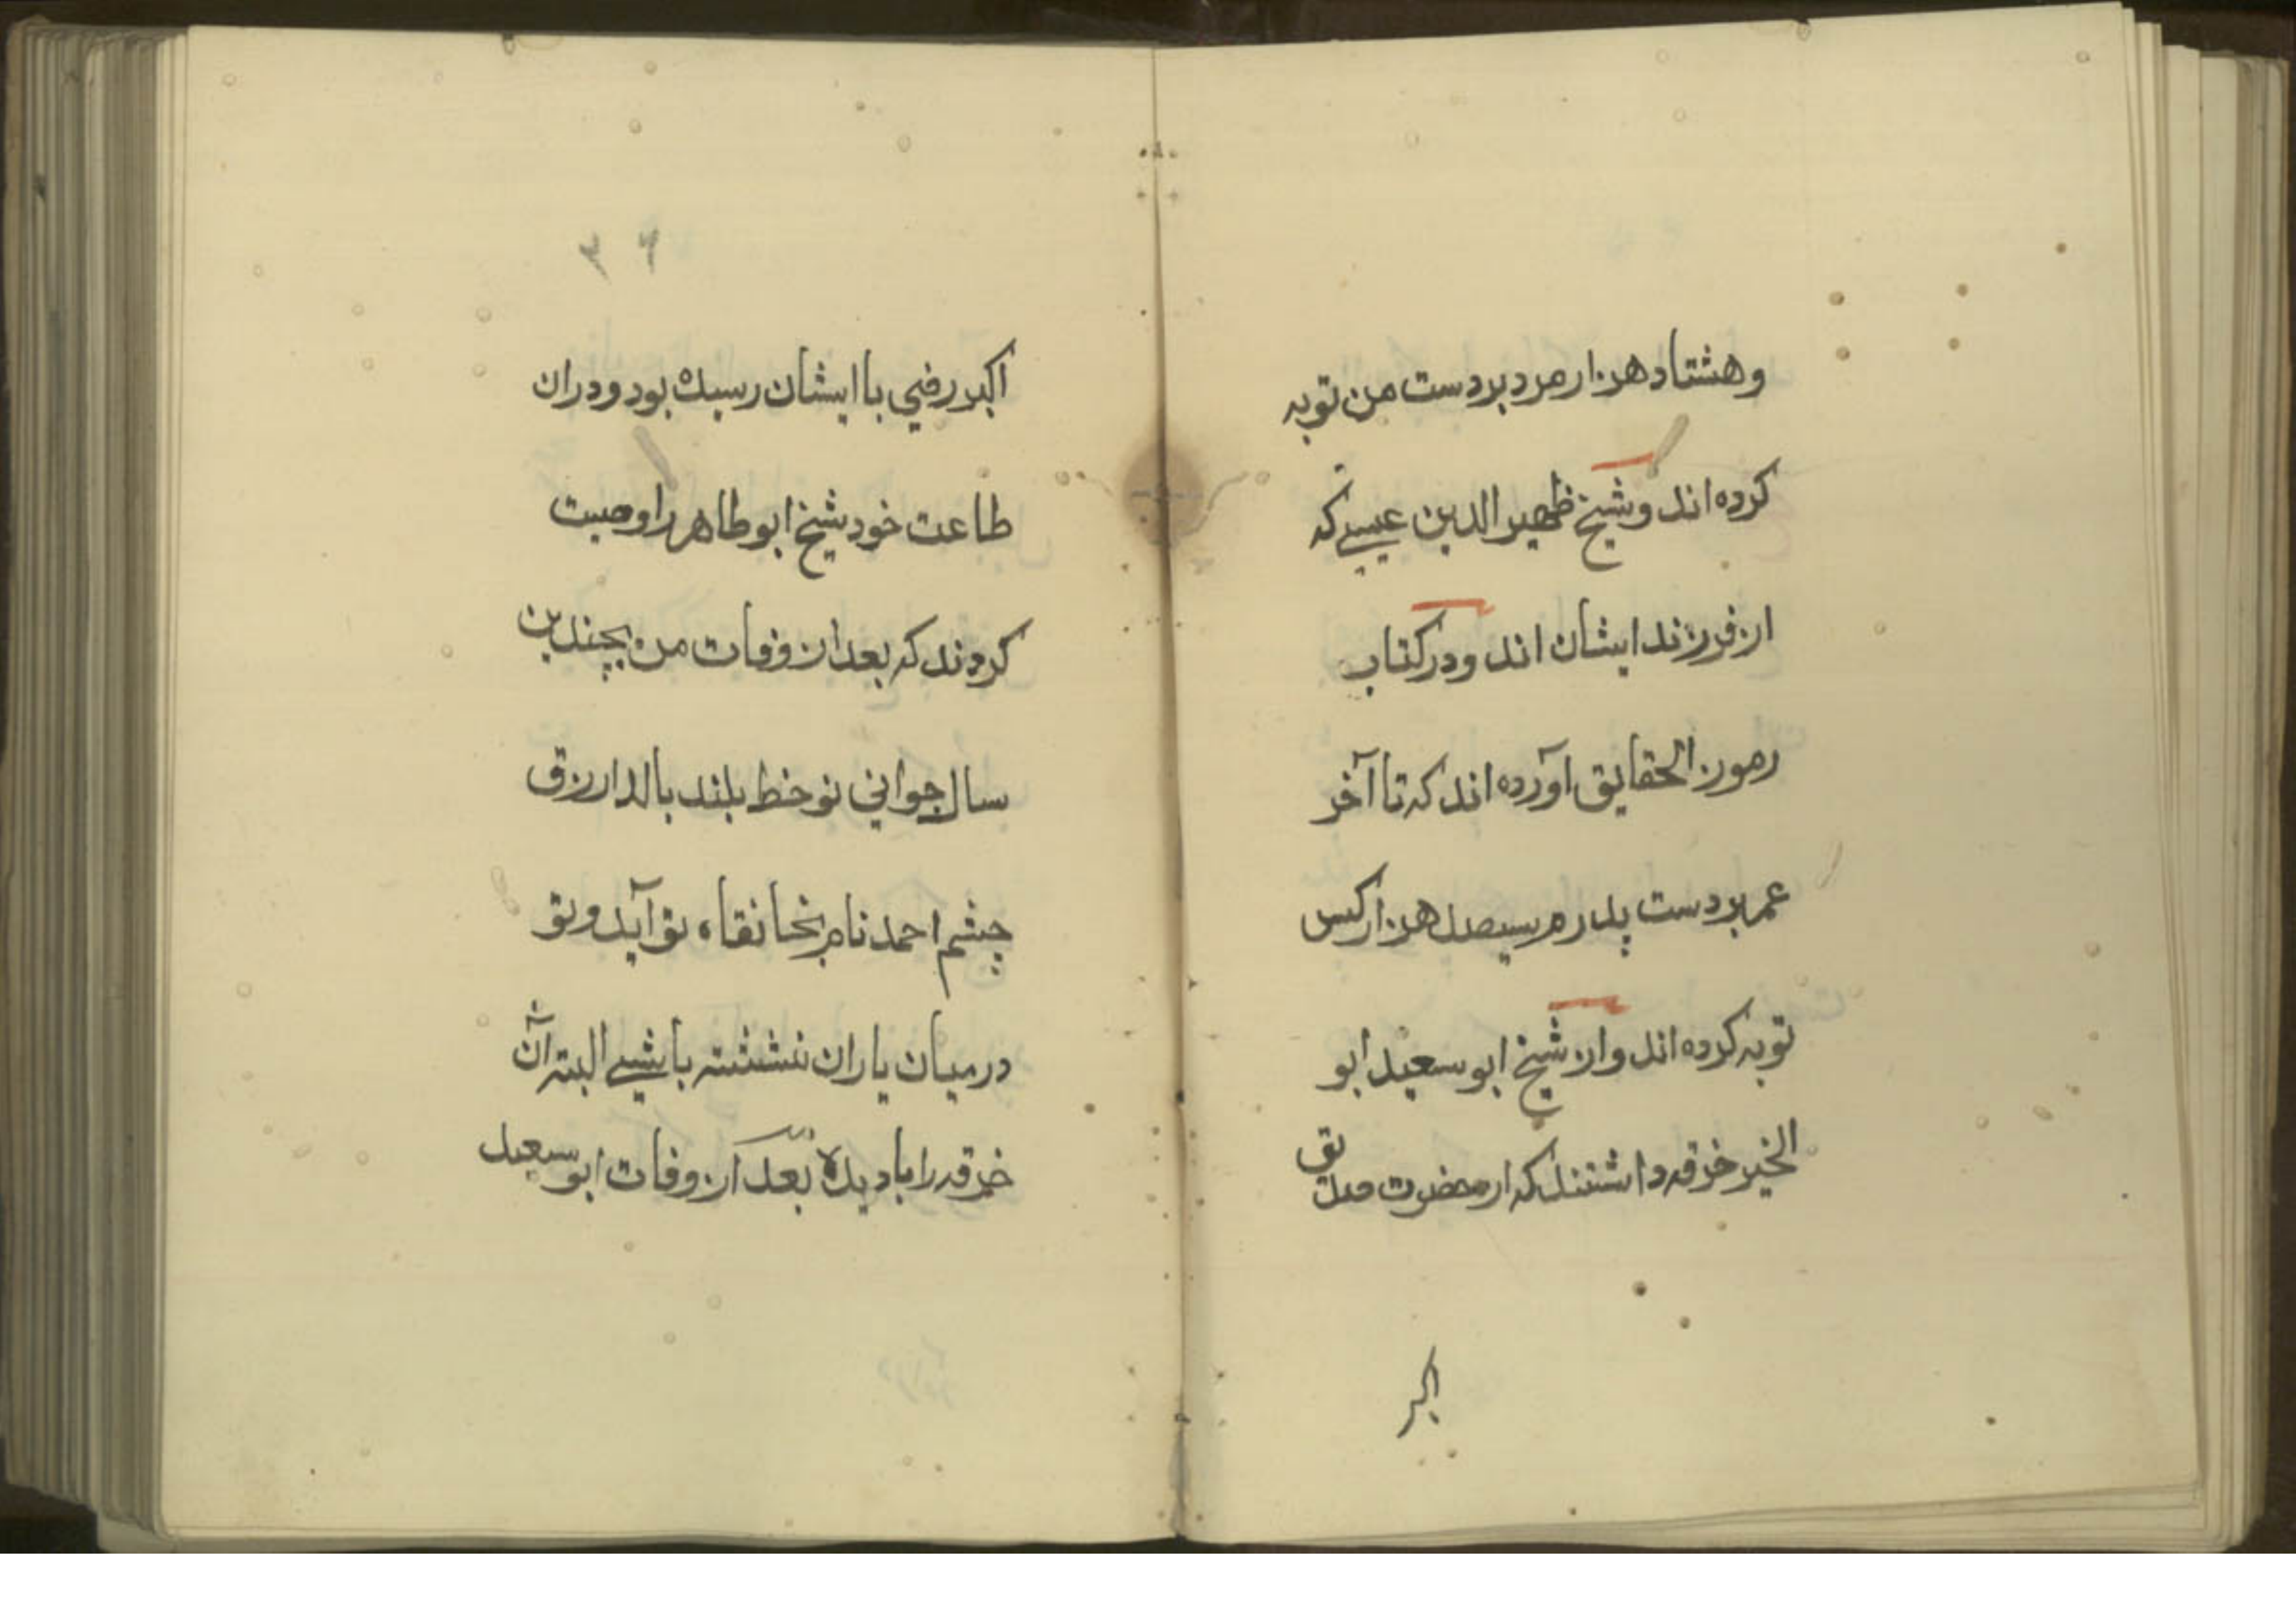 و هشتاد هزار مرد بردست من توبه
کرده اند و شیخ ظهیر الدین عیسی که
از فرزند ایشان اند و در کتاب
رموز الحقایق آورده اند که تا آخر
عمر بردست پدرم سیصد هزار کس
توبه کرده اند و از شیخ ابو سعید ابو
الخیر خرقه داشتند که از حضرت صدیق
اکبر
۳۶
اکبر رضی با ایشان رسیده بود و دران
طاعت خود شیخ ابو طاهر را وصیت
کردند که بعد از وفات من بچندین
سال جوانی نو خط بلند بالا ازرق
چشم احمد نام بخانقاه تو آید و تو
در میان یاران نشسته باشی البته آن
خرقه را باو بده بعد از وفات ابو سعید